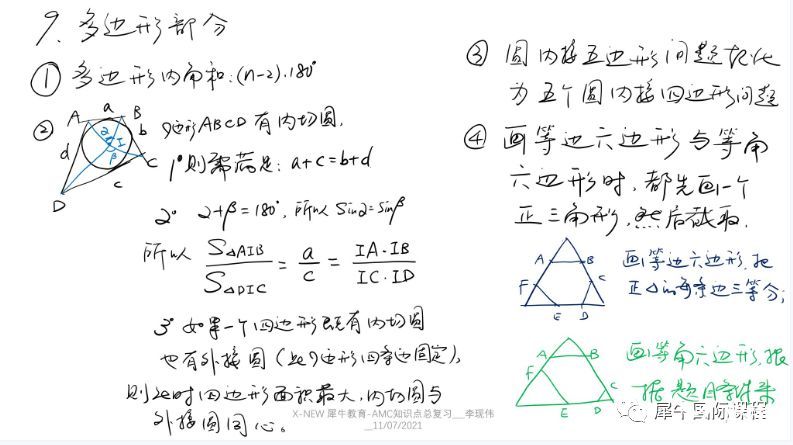 9. 多边形部分
① 多边形内角和: (n-2)·180°
② 四边形ABCD有内切圆.
A a B
b
d
I
α
β
C
c
D
1° 则需满足: a+c=b+d
2° α+β=180°, 所以 sinα=sinβ
所以 S△AIB/S△DIC = a/c = IA·IB/IC·ID
3° 如果一个四边形既有内切圆
也有外接圆 (此四边形四条边固定),
则此时四边形面积最大, 内切圆与
外接圆同心。
③ 圆内接五边形问题转化
为五个圆内接四边形问题
④ 画等边六边形与等角
六边形时, 都先画一个
正三角形, 然后截取.
A B
F C
E D
画等边六边形, 把
正△的每条边三等分;
A B
F C
E D
画等角六边形, 根
据题目条件来
X-NEW 犀牛教育-AMC知识点总复习__李现伟
__11/07/2021
犀牛国际课程